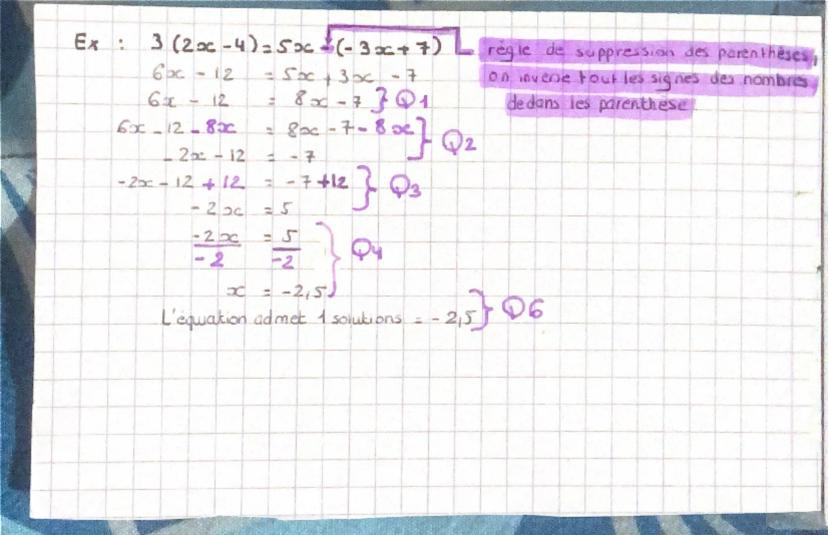 Ex : 3 (2x - 4) = 5x - (- 3x + 7)
règle de suppression des parenthèses,
on inverse tout les signes des nombres
dedans les parenthèse
6x - 12 = 5x + 3x - 7
6x - 12 = 8x - 7 } Q1
6x - 12 - 8x = 8x - 7 - 8x
- 2x - 12 = - 7 } Q2
-2x - 12 + 12 = - 7 + 12 } Q3
- 2x = 5
-2x/-2 = 5/-2 } Q4
x = -2,5
L'équation admet 1 solutions = - 2,5 } Q6